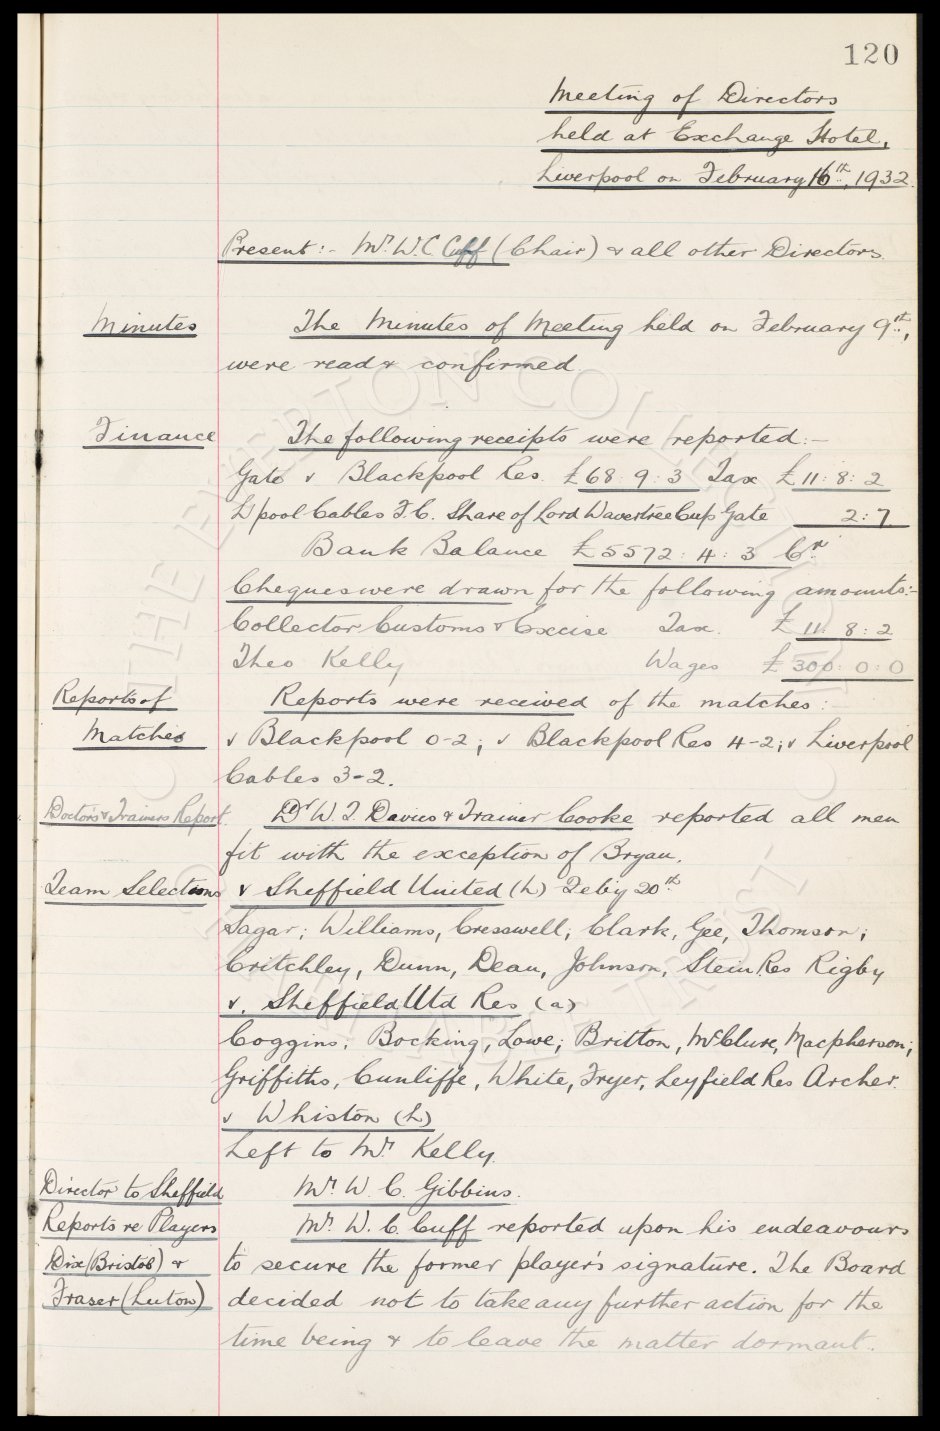 120
Meeting of Directors
held at Exchange Hotel,
Liverpool on February 16th, 1932.
Present:- Mr. W. C. Cuff (Chair) & all other Directors.
Minutes The Minutes of Meeting held on February 9th,
were read & confirmed.
Finance The following receipts were reported:-
Gate v Blackpool Res. £68:9:3 Tax £11:8:2
L'pool Cables F.C. Share of Lord Wavertree Cup Gate 2:7
Bank Balance £5572:4:3 Cr.
Cheques were drawn for the following amounts:-
Collector Customs & Excise Tax. £11:8:2
Theo Kelly Wages £300:0:0
Reports of Reports were received of the matches:-
Matches v Blackpool 0-2; v Blackpool Res 4-2; v Liverpool
Cables 3-2.
Doctor's & Trainers Report. Dr W. T. Davies & Trainer Cooke reported all men
fit with the exception of Bryan.
Team Selections v Sheffield United (h) Feb'y 20th
Sagar; Williams, Cresswell; Clark, Gee, Thomson;
Critchley, Dunn, Dean, Johnson, Stein. Res Rigby
v. Sheffield Utd Res (a)
Coggins; Bocking, Lowe; Britton, McClure, Macpherson;
Griffiths, Cunliffe, White, Fryer, Leyfield Res Archer.
v Whiston (h)
Left to Mr. Kelly.
Director to Sheffield Mr. W. C. Gibbins.
Reports re Players Mr. W. C. Cuff reported upon his endeavours
Dix (Bristol) & to secure the former player's signature. The Board
Fraser (Luton) decided not to take any further action for the
time being & to leave the matter dormant.
© THE EVERTON COLLECTION